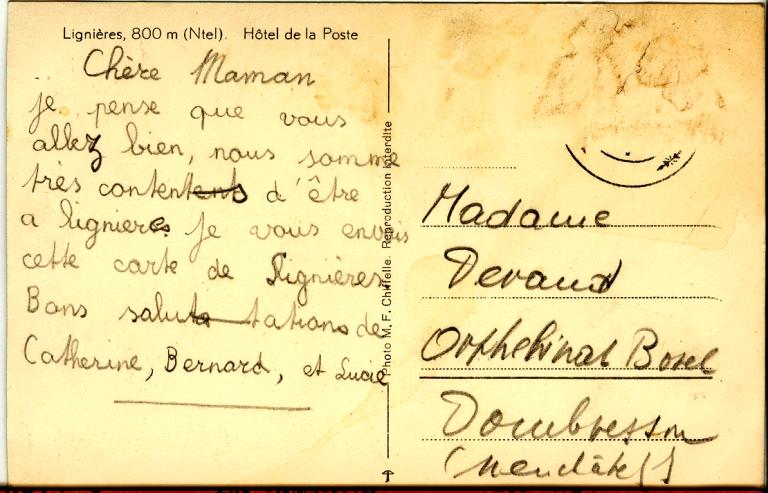 Lignières, 800 m (Ntel). Hôtel de la Poste
Chère Maman
je pense que vous
allez bien, nous somme
très contents d'être
a lignieres je vous envois
cette carte de Lignières
Bons salutations de
Catherine, Bernard, et Lucie
Photo M. F. Chiffelle. Reproduction interdite
Madame
Devaud
Orphelinat Borel
Dombresson
(Neuchâtel)